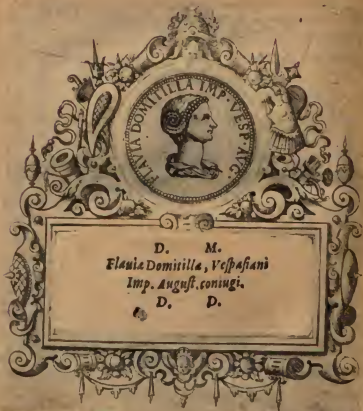 FLAVIA DOMITILLA IMP. VESP. AVG.
D. M.
Flauiæ Domitillæ, Veſpaſiani
Imp. Auguſt. coniugi.
D. D.